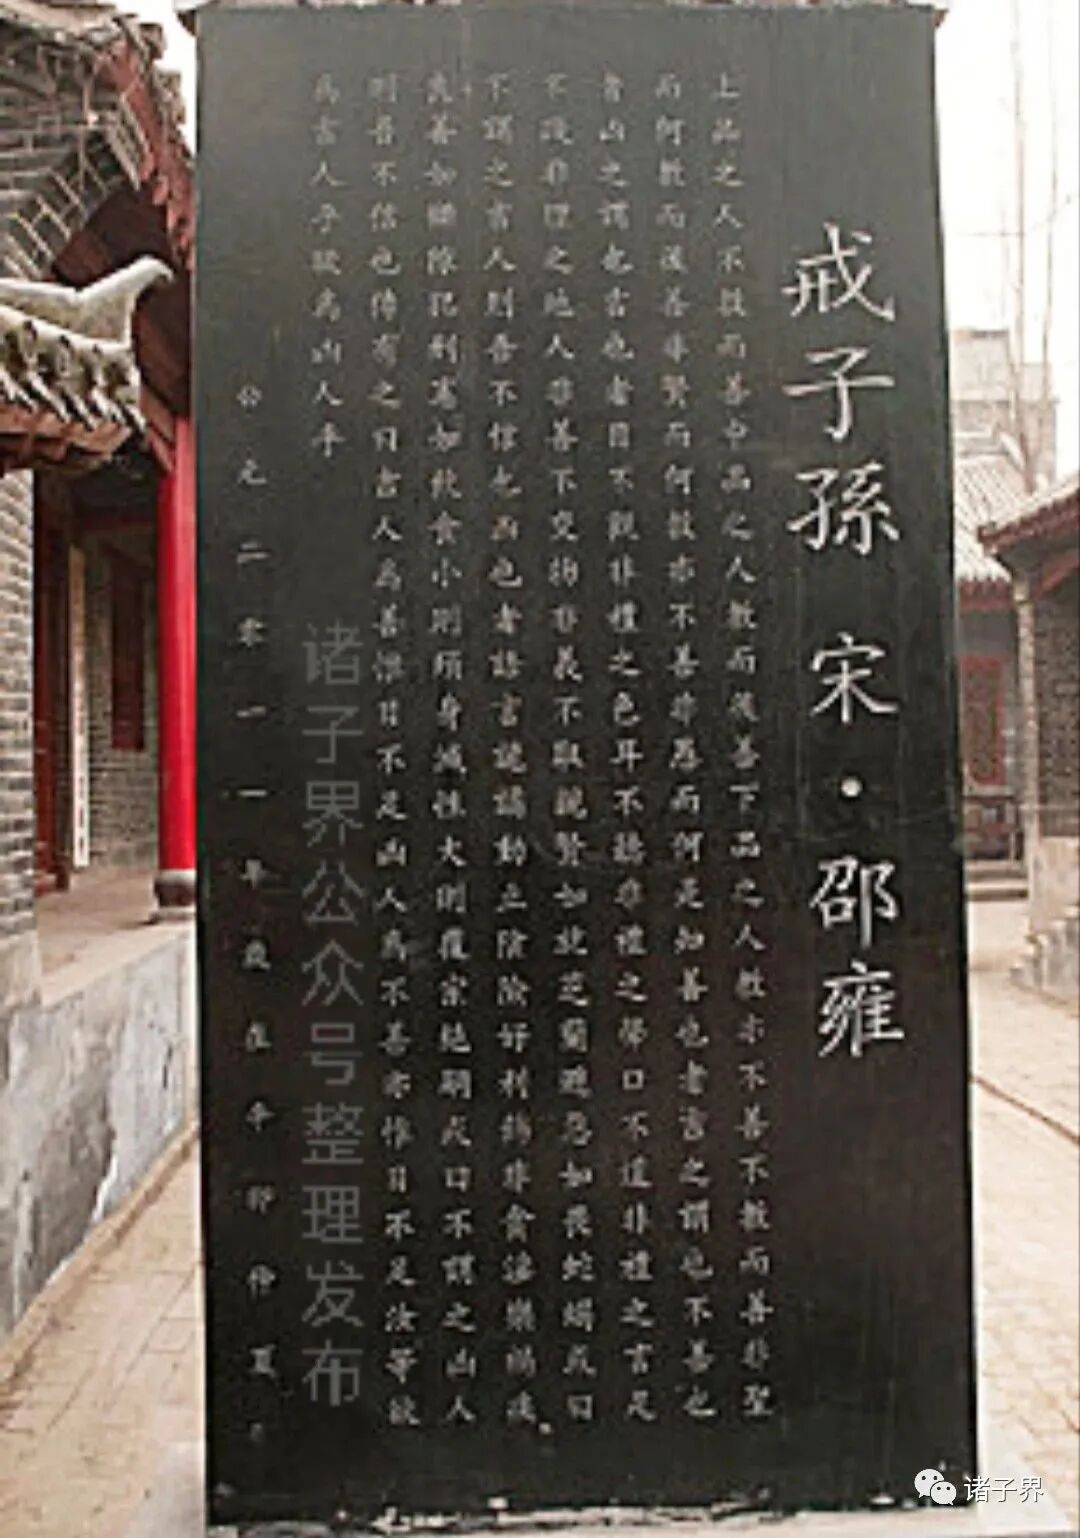 戒子孫 宋·邵雍
上品之人不教而善中品之人教而後善下品之人教亦不善不教而善非聖
而何教而後善非賢而何教亦不善非愚而何是知善也者吉之謂也不善也
者凶之謂也吉也者目不觀非禮之色耳不聽非禮之聲口不道非禮之言足
不踐非理之地人非善不交物非義不取親賢如就芝蘭避惡如畏蛇蝎或曰
不謂之吉人則吾不信也凶也者語言詭譎動止陰險好利飾非貪淫樂禍疾
良善如讎隙犯刑憲如飲食小則殞身滅性大則覆宗絕嗣或曰不謂之凶人
則吾不信也傳有之曰吉人為善惟日不足凶人為不善亦惟日不足汝等欲
為吉人乎欲為凶人乎
公元二零一一年歲在辛卯仲夏
诸子界公众号整理发布
诸子界